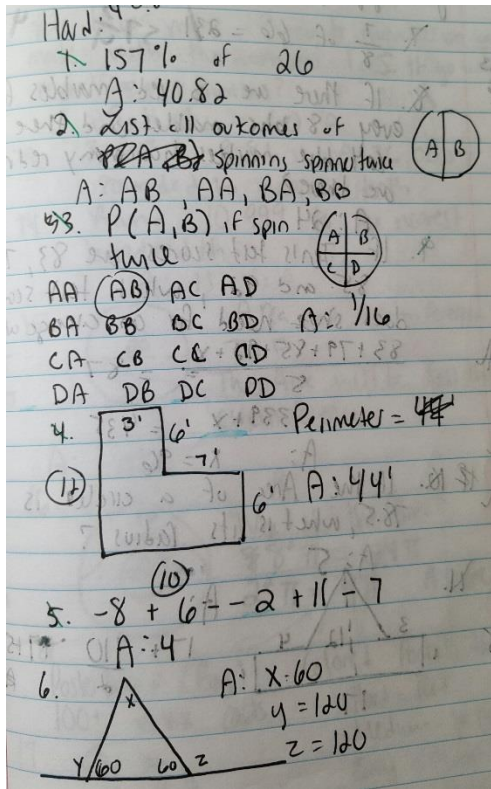 Hard:
1. 157% of 26
A: 40.82
2. List all outcomes of
spinning spinner twice
A B
A: AB, AA, BA, BB
3. P(A,B) if spin
twice
A B
C D
AA AB AC AD
BA BB BC BD A: 1/16
CA CB CC CD
DA DB DC DD
4. 3' 6' Perimeter =
7'
6 A: 44'
10
5. -8 + 6 - -2 + 11 - 7
A: 4
6. A: x=60
x y=120
z=120
y 60 60 z